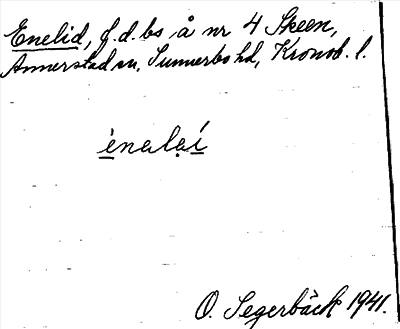 Enelid, f.d. bs å nr 4 Skeen,
Annerstad sn, Sunnerbo hd, Kronob. l.
ènalaí
O. Segerbäck 1941.